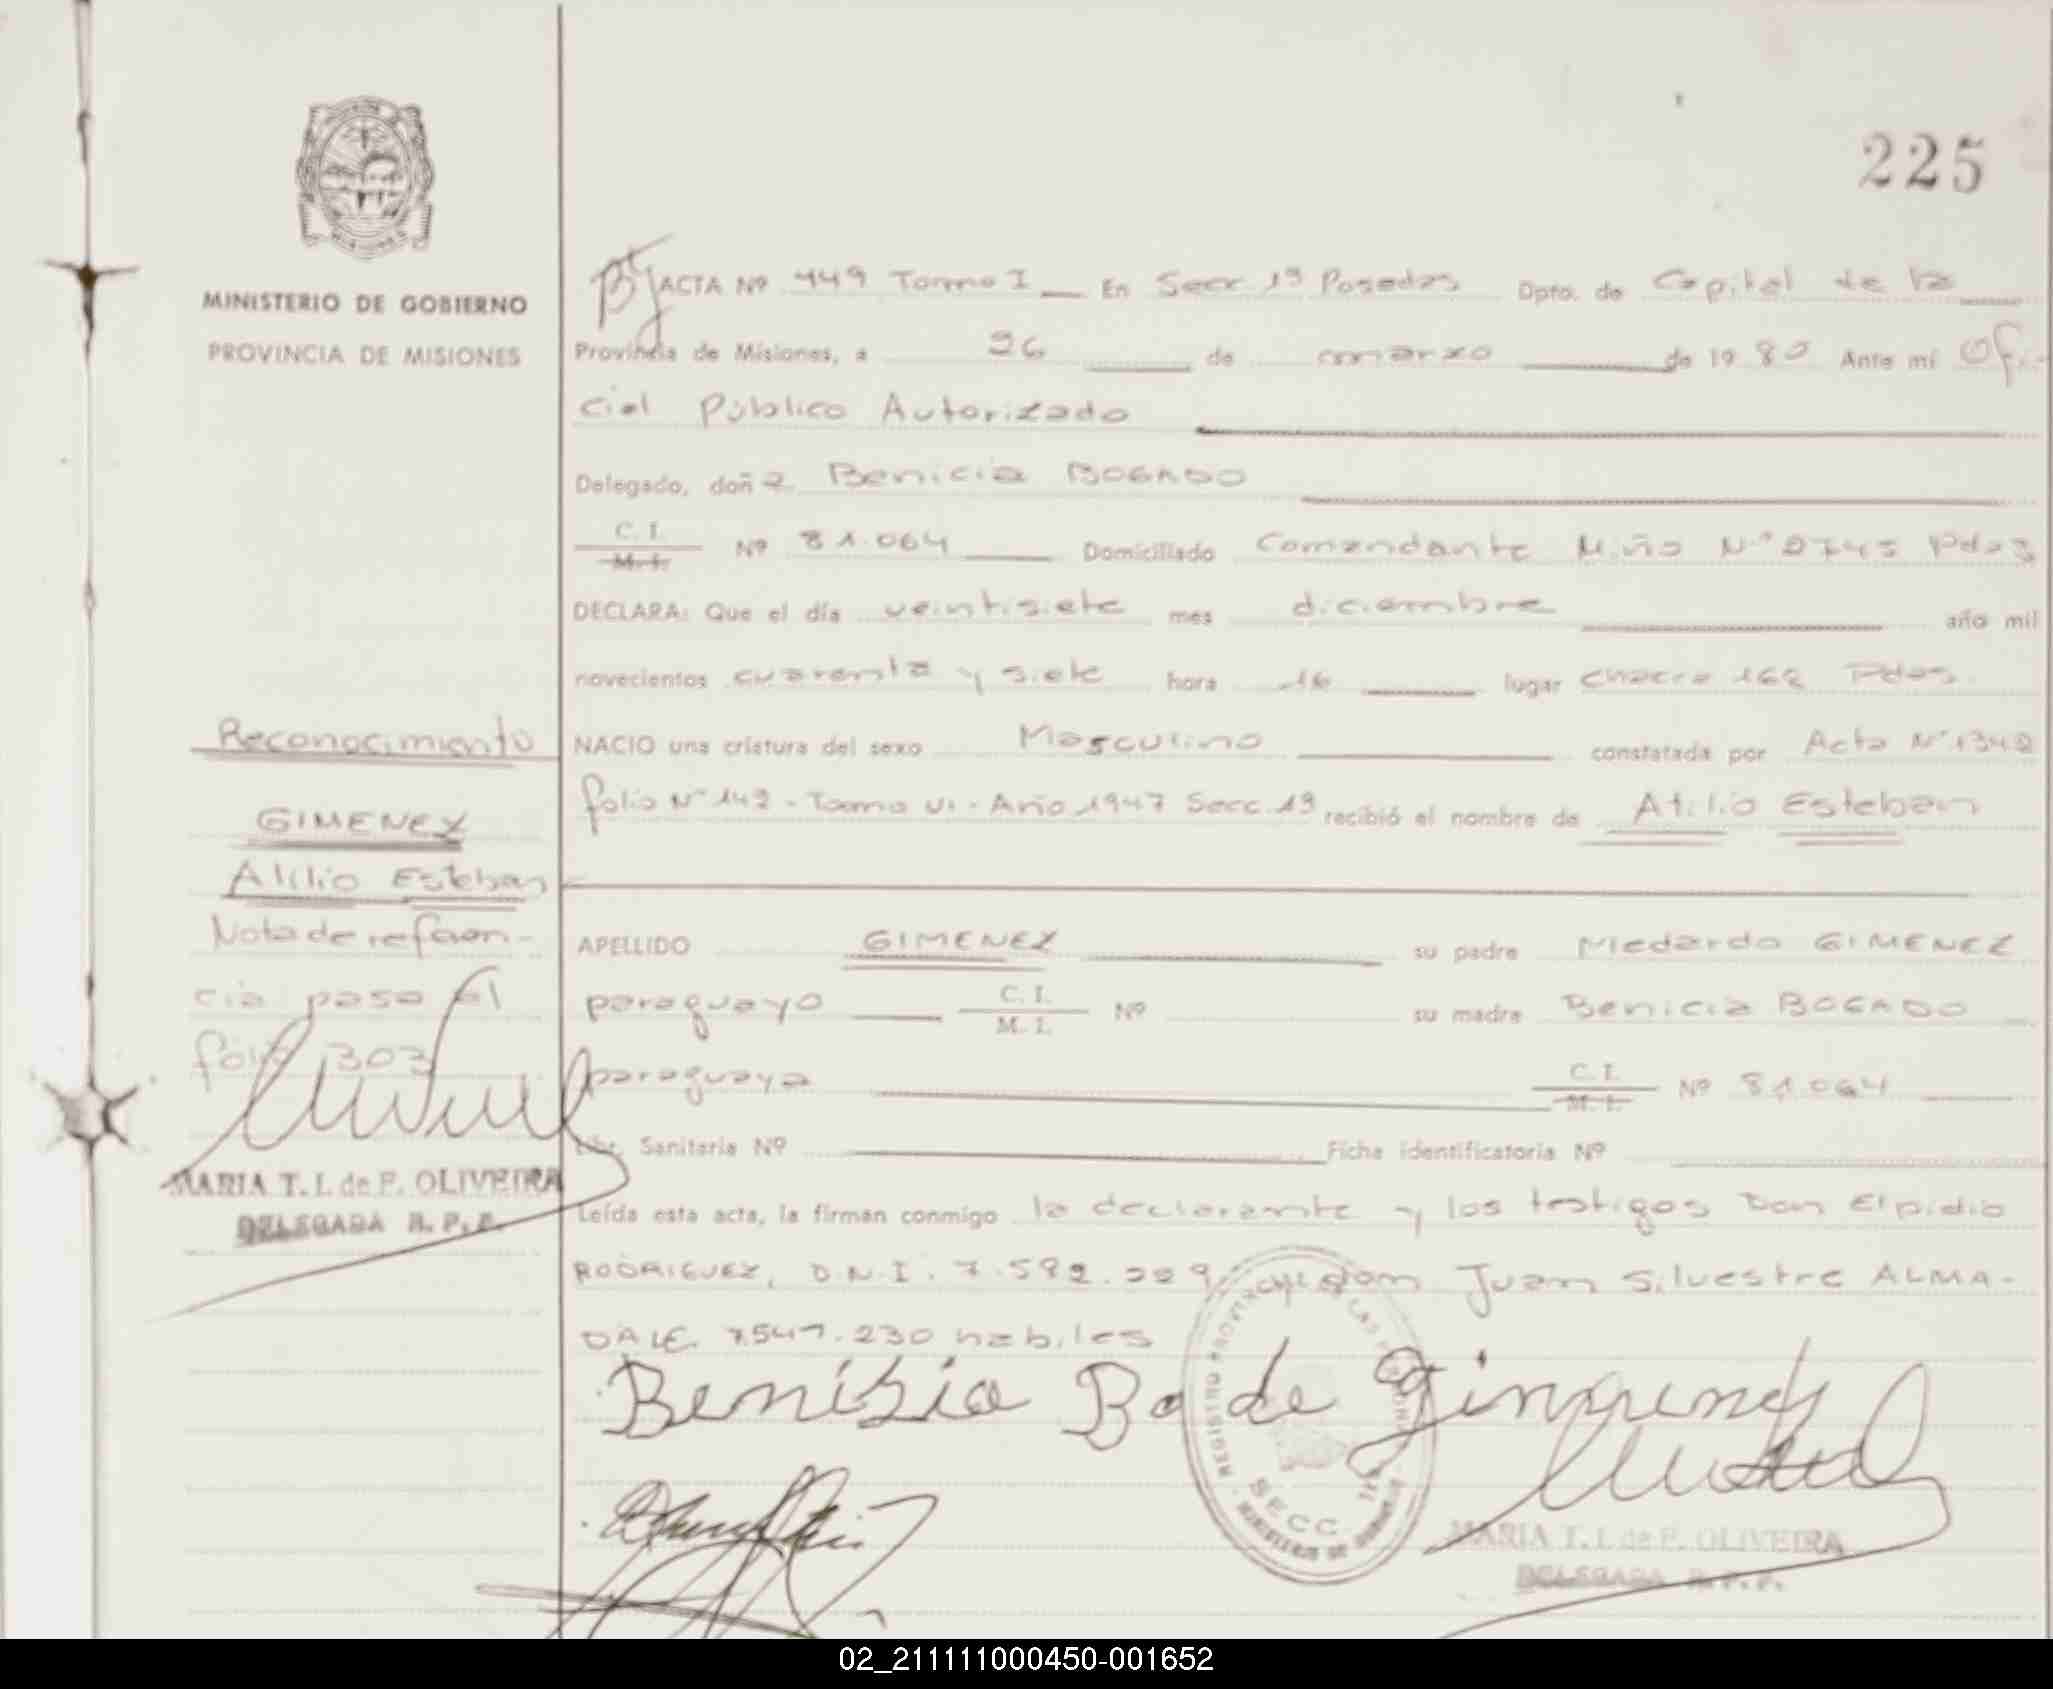 225
MINISTERIO DE GOBIERNO
PROVINCIA DE MISIONES
ACTA Nº 449 Tomo I En Secc. 1ª Posadas Dpto. de Capital de la
Provincia de Misiones, a 26 de marzo de 1980 Ante mí Ofi-
cial Público Autorizado
Delegado, doña Benicia BOGADO
C. I.
M. I.
Nº 81.064 Domiciliado Comandante Miño Nº 2745 Pdas
DECLARA: Que el día veintisiete mes diciembre año mil
novecientos cuarenta y siete hora 16 lugar chacra 162 Pdas.
NACIO una criatura del sexo Masculino constatada por Acta Nº 1342
folio Nº 142 - Tomo VI - Año 1947 Secc. 1ª recibió el nombre de Atilio Esteban
APELLIDO GIMENEZ su padre Medardo GIMENEZ
paraguayo C. I. M. I. Nº su madre Benicia BOGADO
paraguaya C. I. M. I. Nº 81.064
Libr. Sanitaria Nº Ficha identificatoria Nº
Leída esta acta, la firman conmigo la declarante y los testigos Don Elpidio
RODRIGUEZ, D.N.I. 7.582.229 y don Juan Silvestre ALMA-
DA L.E. 7.541.230 habiles
Benisia Bo de Gimenez
Reconocimiento
GIMENEZ
Atilio Esteban
Nota de referen-
cia pasa al
folio 303
MARIA T. I. de F. OLIVEIRA
DELEGADA R. P. P.
REGISTRO PROVINCIAL DE LAS PERSONAS
SECC. 1ª
MINISTERIO DE GOBIERNO
MARIA T. I. de F. OLIVEIRA
DELEGADA R. P. P.
02_211111000450-001652